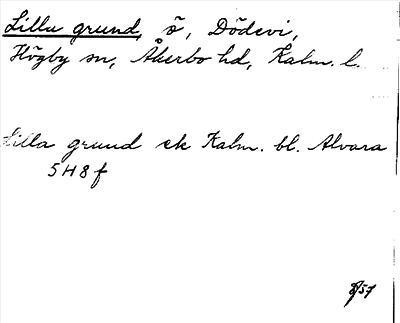 Lilla grund, ö, Dödevi,
Högby sn, Åkerbo hd, Kalm. l.
Lilla grund ek Kalm. bl. Alvara
5H8f